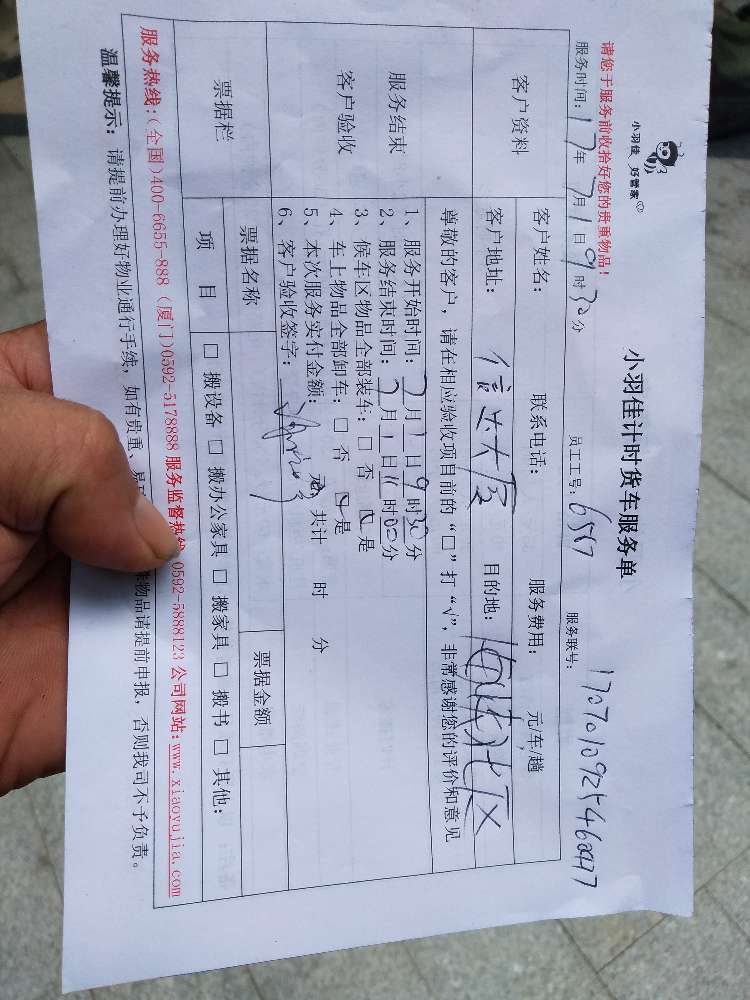 小羽佳 好管家
小羽佳计时货车服务单
请您于服务前收拾好您的贵重物品!
服务时间: 17年 7月 1日 9时 30分 员工工号: 6517 服务联号:
客户资料 客户姓名: 联系电话: 服务费用: 元/车/趟
客户地址: 信达大厦 目的地:
服务结束
客户验收
尊敬的客户, 请在相应验收项目前的“□”打“√”, 非常感谢您的评价和意见
1、服务开始时间: 7月 1日 9时 30分
2、服务结束时间: 7月 1日 11时 00分
3、候车区物品全部装车: □ 否 ☑ 是
4、车上物品全部卸车: □ 否 ☑ 是
5、本次服务实付金额: 元, 共计 时 分
6、客户验收签字:
票据栏 票据名称 票据金额
项 目 □ 搬设备 □ 搬办公家具 □ 搬家具 □ 搬书 □ 其他:
服务热线:(全国)400-6655-888 (厦门)0592-5178888 服务监督热线 0592-5888123 公司网站:www.xiaoyujia.com
温馨提示: 请提前办理好物业通行手续, 如有贵重、易 物品请提前申报, 否则我司不予负责。